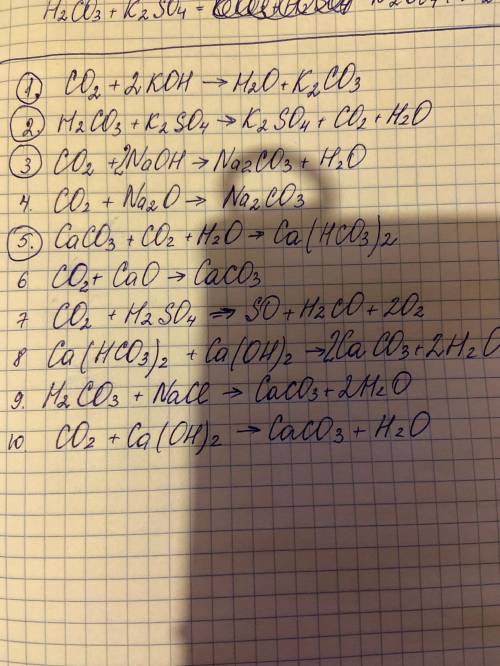 H₂CO₃ + K₂SO₄ =
1. CO₂ + 2KOH → H₂O + K₂CO₃
2. H₂CO₃ + K₂SO₄ → K₂SO₄ + CO₂ + H₂O
3 CO₂ + 2NaOH → Na₂CO₃ + H₂O
4. CO₂ + Na₂O → Na₂CO₃
5. CaCO₃ + CO₂ + H₂O → Ca(HCO₃)₂
6 CO₂ + CaO → CaCO₃
7 CO₂ + H₂SO₄ → SO + H₂CO + 2O₂
8 Ca(HCO₃)₂ + Ca(OH)₂ → 2CaCO₃ + 2H₂O
9. H₂CO₃ + NaCl → CaCO₃ + 2H₂O
10 CO₂ + Ca(OH)₂ → CaCO₃ + H₂O